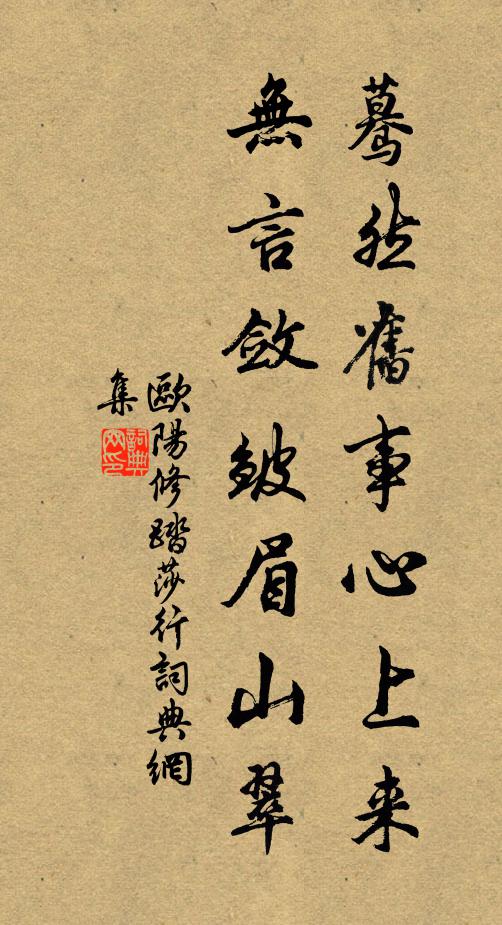 驀然舊事心上来
無言斂皴眉山翠
歐陽修踏莎行詞典網
集
詞典网印